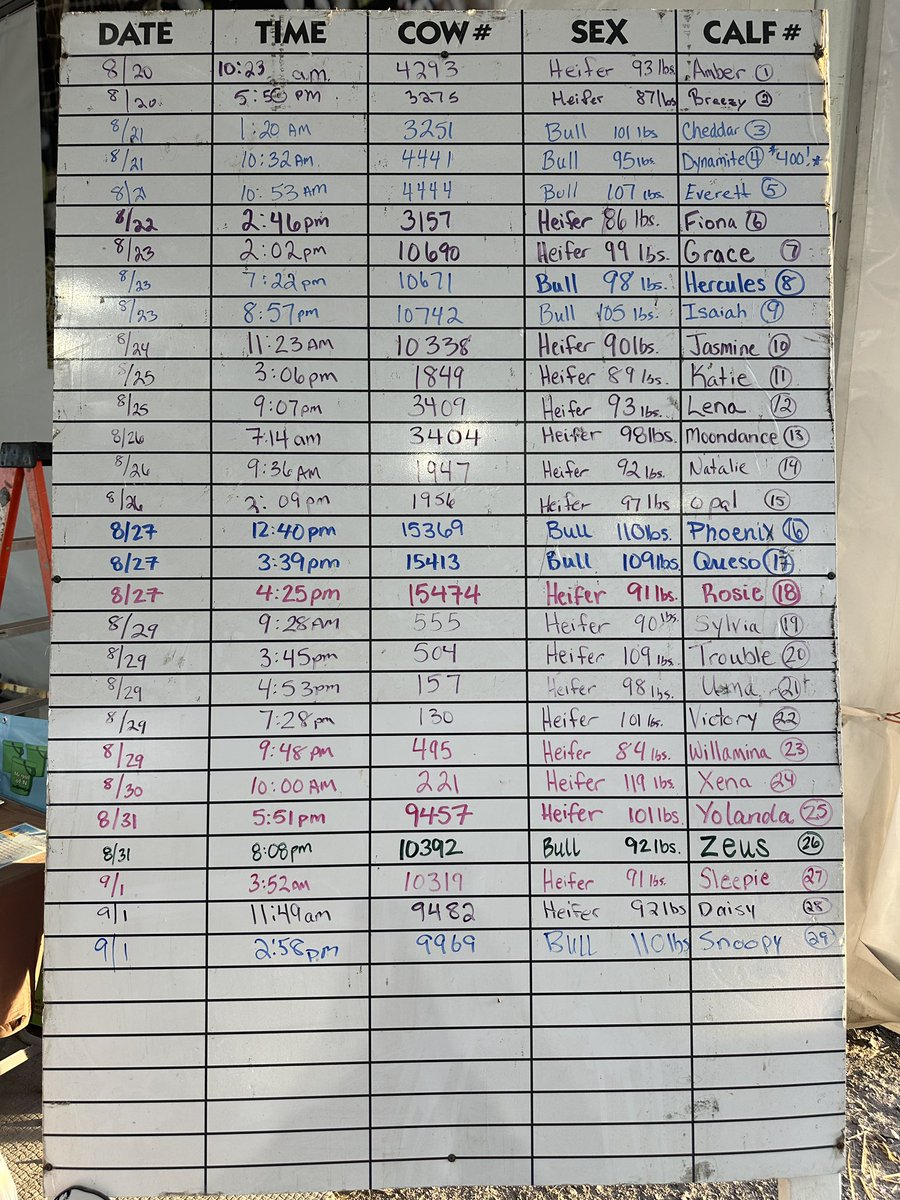 DATE TIME COW # SEX CALF #
8/20 10:23 a.m. 4293 Heifer 93 lbs. Amber 1
8/20 5:50 pm 3275 Heifer 87 lbs Breezy 2
8/21 1:20 AM 3251 Bull 101 lbs Cheddar 3
8/21 10:32 AM. 4441 Bull 95 lbs. Dynamite 4 $400!*
8/21 10:53 AM 4444 Bull 107 lbs. Everett 5
8/22 2:46pm 3157 Heifer 86 lbs. Fiona 6
8/23 2:02pm 10690 Heifer 99 lbs. Grace 7
8/23 7:22pm 10671 Bull 98 lbs. Hercules 8
8/23 8:57pm 10742 Bull 105 lbs. Isaiah 9
8/24 11:23 AM 10338 Heifer 90lbs. Jasmine 10
8/25 3:06pm 1849 Heifer 89 lbs. Katie 11
8/25 9:07pm 3409 Heifer 93 lbs. Lena 12
8/26 7:14 am 3404 Heifer 98lbs. Moondance 13
8/26 9:36 AM 1947 Heifer 92 lbs. Natalie 14
8/26 3:09pm 1956 Heifer 97 lbs opal 15
8/27 12:40pm 15369 Bull 110lbs. Phoenix 16
8/27 3:39pm 15413 Bull 109lbs. Queso 17
8/27 4:25pm 15474 Heifer 91 lbs. Rosie 18
8/29 9:28AM 555 Heifer 90 lbs. Sylvia 19
8/29 3:45pm 504 Heifer 109 lbs. Trouble 20
8/29 4:53pm 157 Heifer 98 lbs. Uma 21
8/29 7:28pm 130 Heifer 101 lbs. Victory 22
8/29 9:48 pm 495 Heifer 84 lbs. Willamina 23
8/30 10:00 AM 221 Heifer 119 lbs. Xena 24
8/31 5:51pm 9457 Heifer 101lbs. Yolanda 25
8/31 8:08pm 10392 Bull 92lbs. Zeus 26
9/1 3:52am 10319 Heifer 91 lbs. Sleepie 27
9/1 11:49am 9482 Heifer 92lbs Daisy 28
9/1 2:58pm 9969 Bull 110lbs Snoopy 29